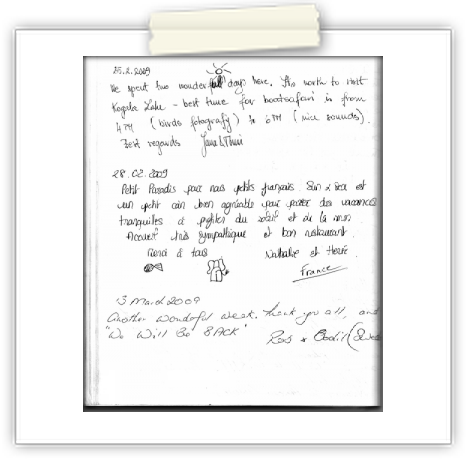 25.2.2009
We spent two wonderfull days here. It's worth to visit
Kogala Lake - best time for bootsafari is from
4 PM (birds fotografy) to 6 PM (nice sounds).
Best regards
28.02.2009
Petit Paradis pour nous petits français. Sun & Sea est
un petit coin bien agréable pour passer des vacances
tranquilles à profiter du soleil et de la mer.
Accueil très sympathique et bon restaurant.
Merci à tous Nathalie et Hervé
France
13 March 2009
Another wonderful week. Thank you all, and
"We Will Be BACK" Ros &